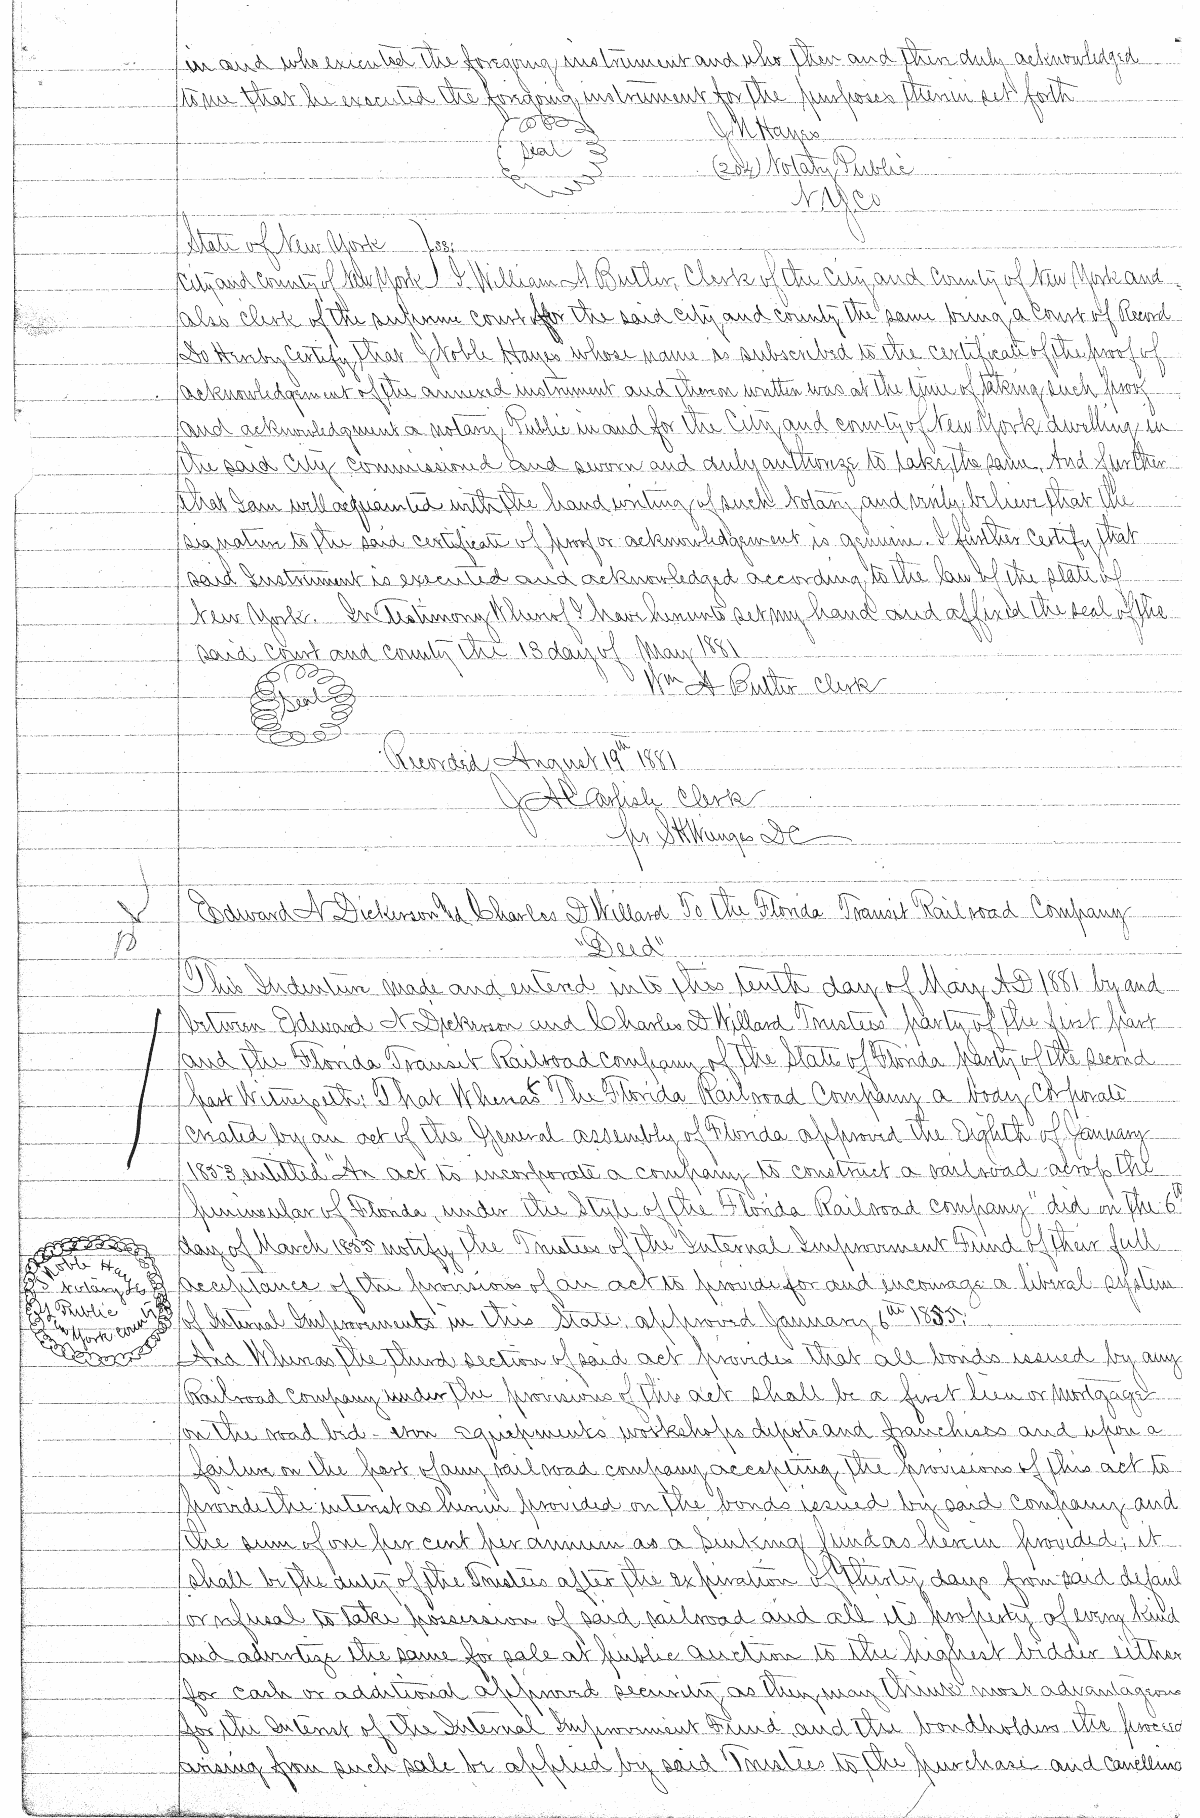 in and who executed the foregoing instrument and who then and there duly acknowledged
to me that he executed the foregoing instrument for the purposes therein set forth
Seal
J N Hayes
(204) Notary Public
N.Y. Co
State of New York } ss;
City and County of New York } I William A Butler, Clerk of the City and County of New York and
also clerk of the supreme court for the said city and county the same being a Court of Record
Do Hereby Certify that J Noble Hayes whose name is subscribed to the certificate of the proof of
acknowledgement of the annexed instrument and thereon written was at the time of taking such proof
and acknowledgment a notary Public in and for the City and county of New York dwelling in
the said City commissioned and sworn and duly authorize to take the same. And further
that I am well acquainted with the hand writing of such Notary and verily believe that the
signature to the said certificate of proof or acknowledgement is genuine. I further certify that
said Instrument is executed and acknowledged according to the law of the state of
New York. In Testimony Whereof I have hereunto set my hand and affixed the seal of the
said court and county the 13 day of May 1881
Wm A Butler Clerk
Seal
Recorded August 19th 1881
J A Carlisle Clerk
pr D C
Edward N Dickerson and Charles D Willard To the Florida Transit Railroad Company
"Deed"
This Indenture made and entered into this tenth day of May A D 1881 by and
between Edward N Dickerson and Charles D Willard Trustees party of the first part
and the Florida Transit Railroad company of the State of Florida party of the second
part Witnesseth: That Whereas The Florida Railroad Company a body corporate
created by an act of the General assembly of Florida approved the Eighth of January
1853, entitled "An act to incorporate a company to construct a railroad across the
peninsular of Florida, under the Style of the Florida Railroad company" did on the 6th
day of March 1855 notify the Trustees of the Internal Improvement Fund of their full
acceptance of the provisions of an act to provide for and encourage a liberal system
of Internal Improvements in this State, approved January 6th 1855;
Noble Hayes
Notary
Public
New York County
And Whereas the third section of said act provides that all bonds issued by any
Railroad Company under the provisions of this act shall be a first lien or mortgage
on the road bed - iron equipments workshops depots and franchises and upon a
failure on the part of any railroad company accepting the provisions of this act to
provide the interest as herein provided on the bonds issued by said company and
the sum of one per cent per annum as a sinking fund as herein provided; it
shall be the duty of the Trustees after the expiration of thirty days from said defaul
or refusal to take possession of said railroad and all its property of every kind
and advertize the same for sale at public auction to the highest bidder either
for cash or additional approved security as they may think most advantageous
for the interest of the Internal Improvement Fund and the bondholders the proceed
arising from such sale be applied by said Trustees to the purchase and cancelling